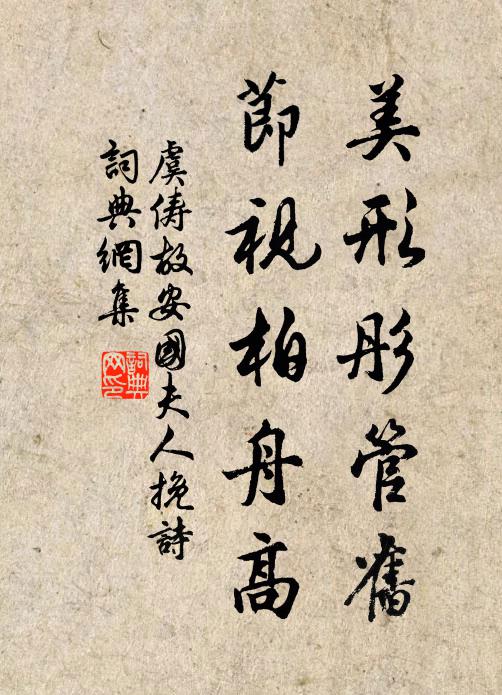 美形彤管舊
節視柏舟高
虞儔故安國夫人挽詩
詞典網集
詞典網印